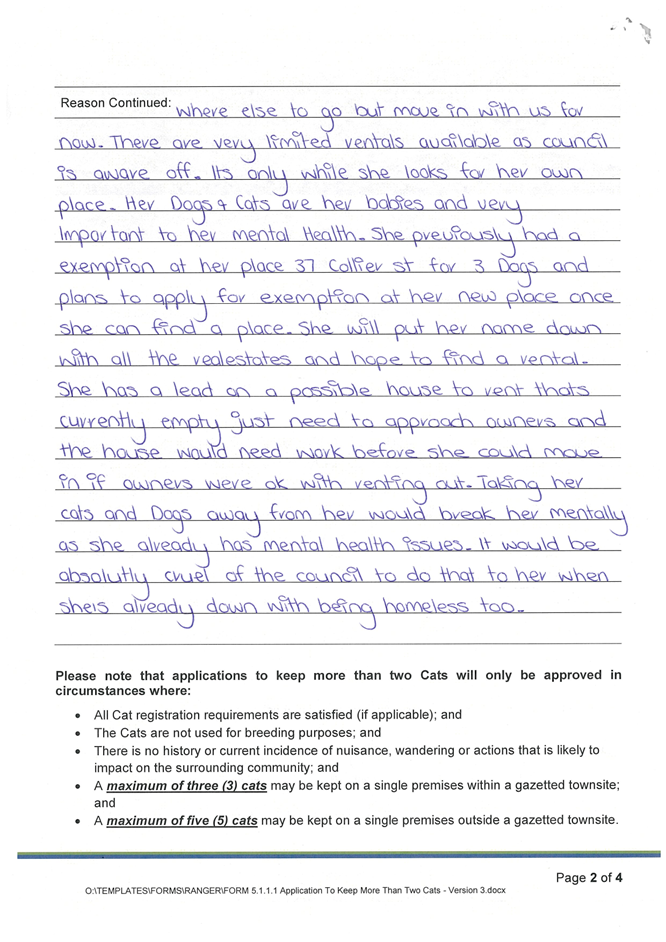 Reason Continued: where else to go but move in with us for
now. There are very limited rentals available as council
is aware off. Its only while she looks for her own
place. Her Dogs & Cats are her babies and very
Important to her mental Health. She previously had a
exemption at her place 37 Collier st for 3 Dogs and
plans to apply for exemption at her new place once
she can find a place. She will put her name down
with all the realestates and hope to find a rental.
She has a lead on a possible house to rent thats
currently empty just need to approach owners and
the house would need work before she could move
in if owners were ok with renting out. Taking her
cats and Dogs away from her would break her mentally
as she already has mental health issues. It would be
absolutly cruel of the council to do that to her when
sheis already down with being homeless too.
Please note that applications to keep more than two Cats will only be approved in
circumstances where:
• All Cat registration requirements are satisfied (if applicable); and
• The Cats are not used for breeding purposes; and
• There is no history or current incidence of nuisance, wandering or actions that is likely to
impact on the surrounding community; and
• A maximum of three (3) cats may be kept on a single premises within a gazetted townsite;
and
• A maximum of five (5) cats may be kept on a single premises outside a gazetted townsite.
Page 2 of 4
O:\TEMPLATES\FORMS\RANGER\FORM 5.1.1.1 Application To Keep More Than Two Cats - Version 3.docx